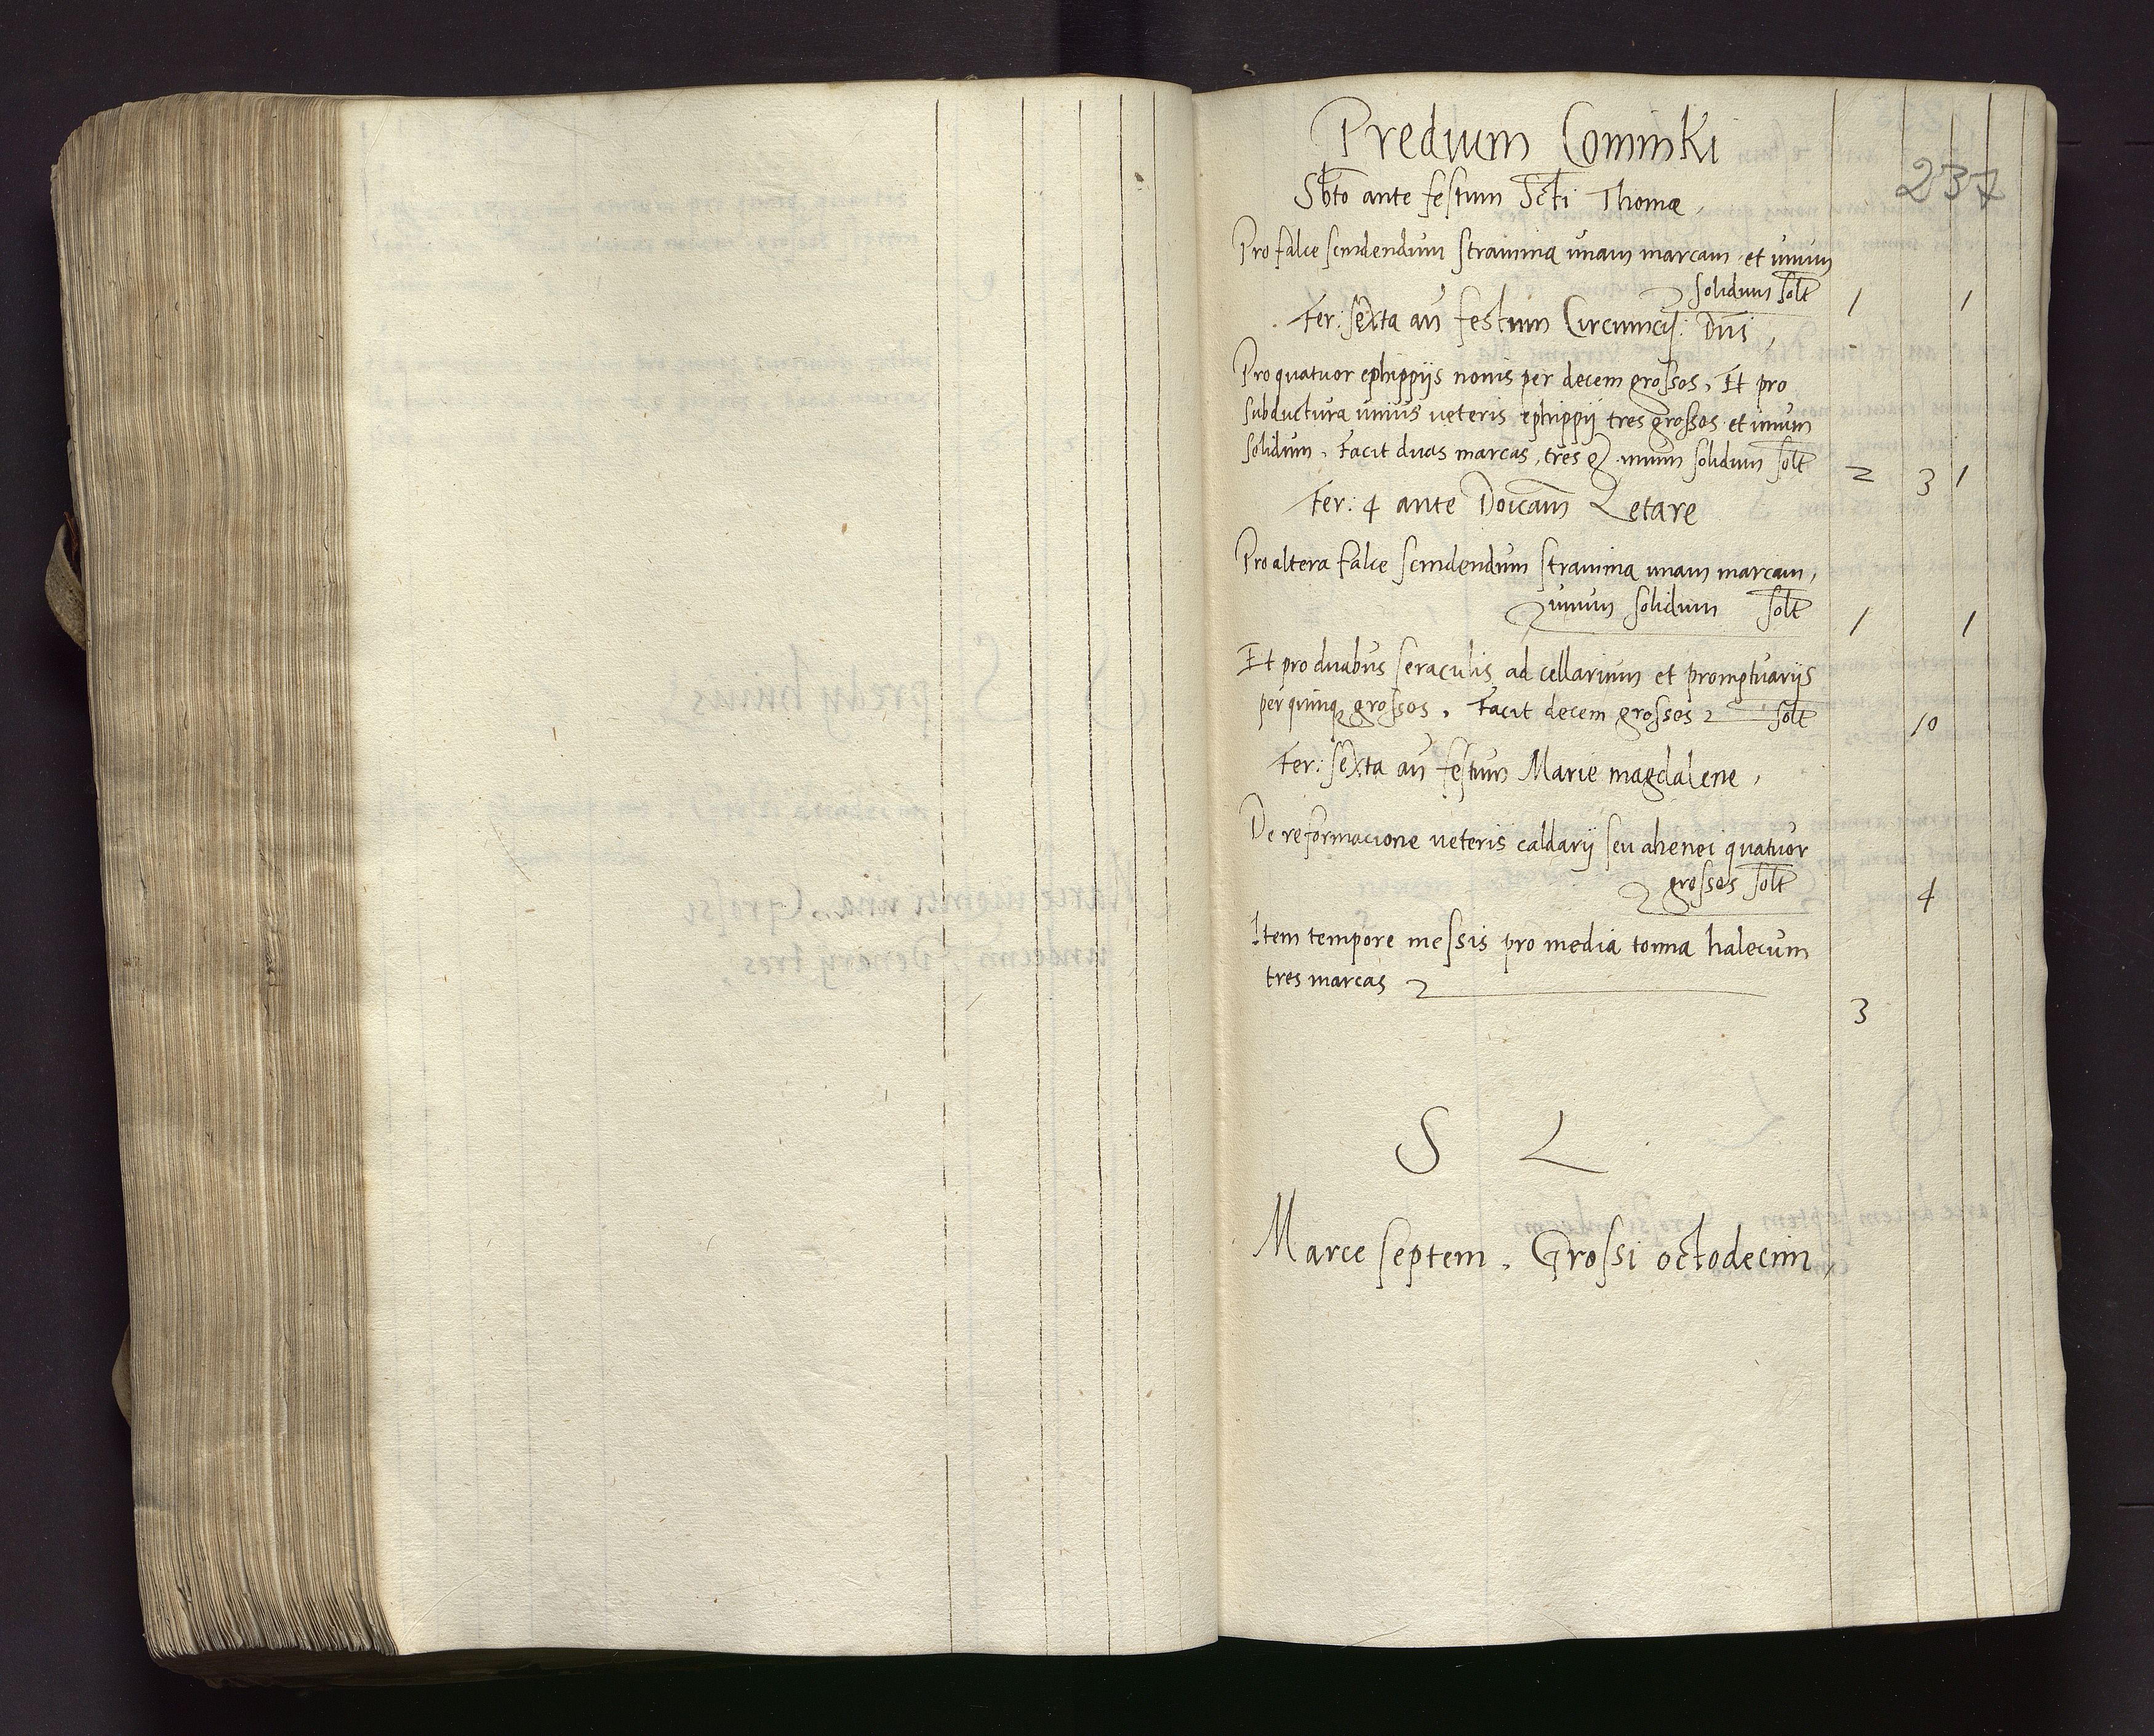 Predium Cominki
237
Sbto ante festum Scti Thomæ,
Pro falce scindendum stramina unam marcam et unum
solidum solt 1 1
Fer: sexta an festum Circumcis: Dni,
Pro quatuor ephippijs nouis per decem grossos, Et pro
subductura unius veteris ephippij tres grossos et unum
solidum, Facit duas marcas, tres gr unum solidum solt 2 3 1
Fer: 4 ante Doicam Letare
Pro altera falce scindendum stramina unam marcam,
unum solidum solt 1 1
Et pro duabus seraculis ad cellarium et promptuarijs
per quinq grossos, Facit decem grossos solt 10
Fer: sexta an festum Marie magdalene,
De reformacione veteris caldarij seu ahenei quatuor
grossos solt 4
Item tempore messis pro media tonna halecum
tres marcas
3
S L
Marce septem, Grossi octodecim,